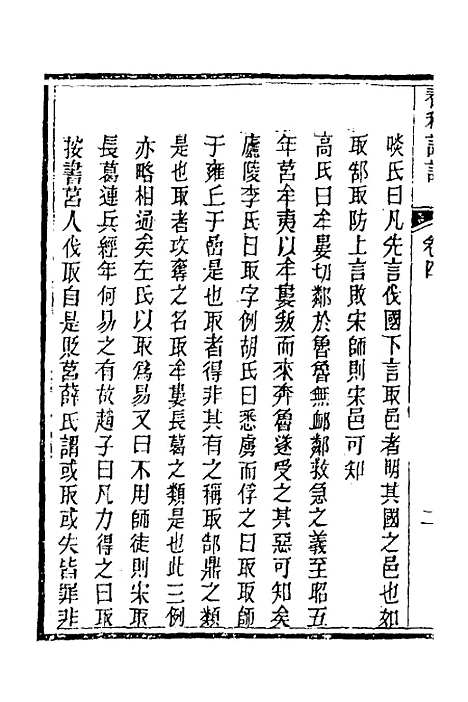 啖氏曰凡先言伐國下言取邑者明其國之邑也如
取郜取防上言敗宋師則宋邑可知
高氏曰牟婁切鄰於魯魯無䘏鄰救急之義至昭五
年莒牟夷以牟婁叛而來奔魯遂受之其惡可知矣
廬陵李氏曰取字例胡氏曰悉虜而俘之曰取取師
于雍丘于嵒是也取者得非其有之稱取郜鼎之類
是也取者攻奪之名取牟婁長葛之類是也此三例
亦略相通矣左氏以取爲易又曰不用師徒則宋取
長葛連兵經年何易之有故趙子曰凡力得之曰取
按書莒人伐取自是貶莒薛氏謂或取或失皆罪非
卷四
二